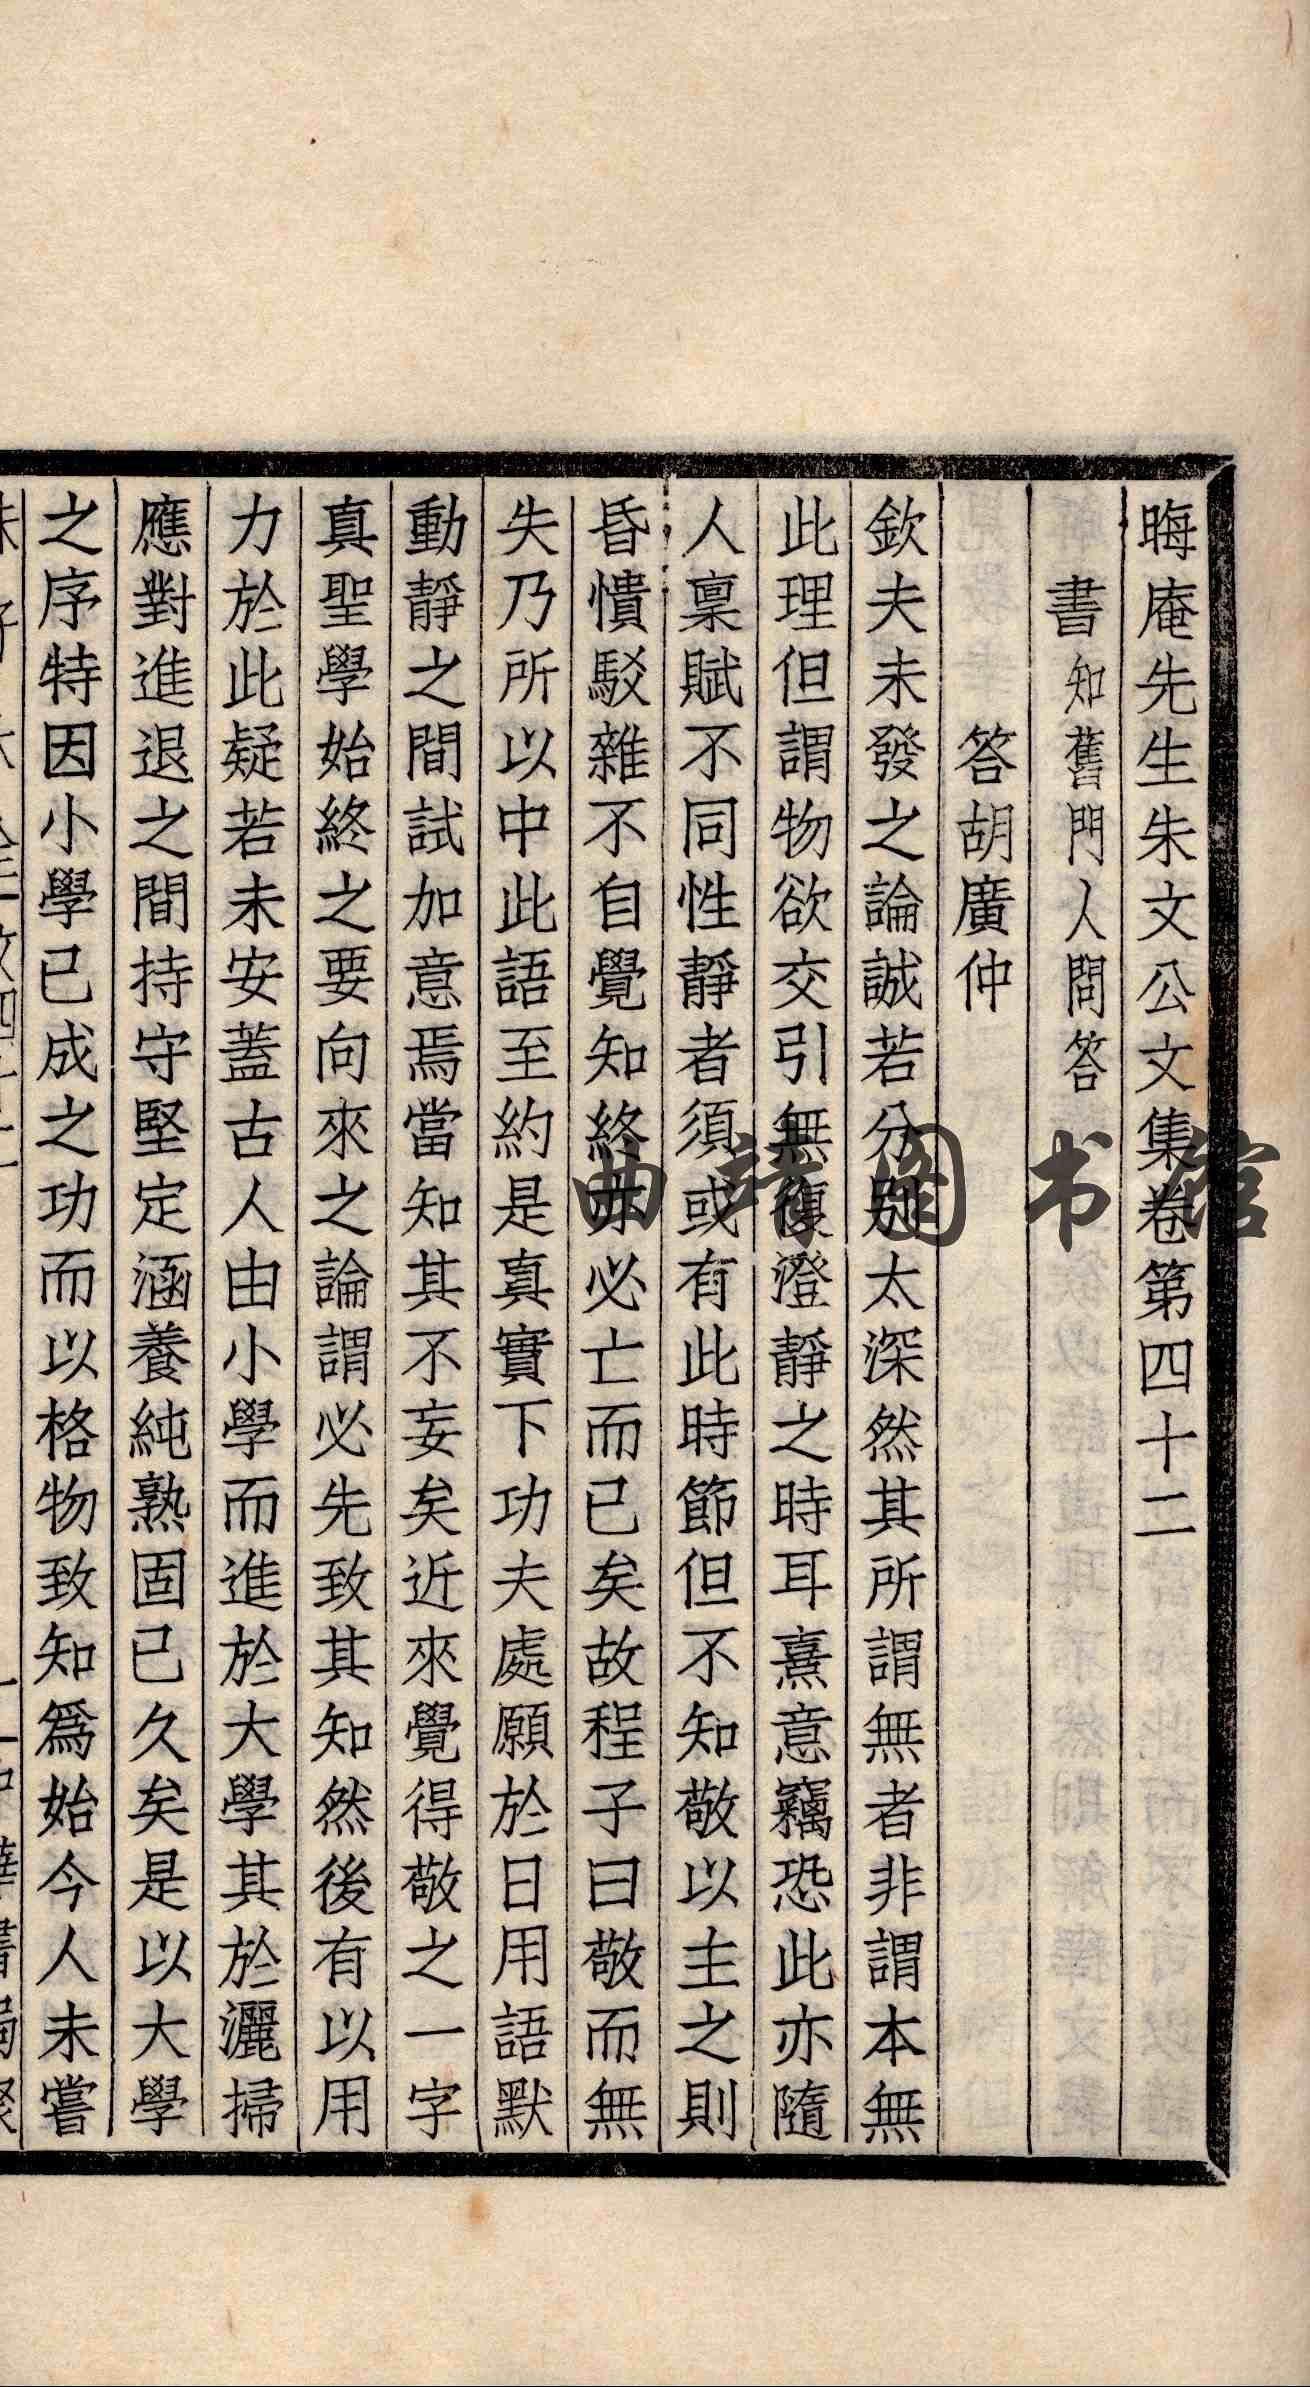 晦庵先生朱文公文集卷第四十二
書知舊門人問答
答胡廣仲
欽夫未發之論誠若分別太深然其所謂無者非謂本無
此理但謂物欲交引無復澄靜之時耳熹意竊恐此亦隨
人稟賦不同性靜者須或有此時節但不知敬以主之則
昏憒駁雜不自覺知終亦必亡而已矣故程子曰敬而無
失乃所以中此語至約是真實下功夫處願於日用語默
動靜之間試加意焉當知其不妄矣近來覺得敬之一字
真聖學始終之要向來之論謂必先致其知然後有以用
力於此疑若未安蓋古人由小學而進於大學其於灑掃
應對進退之間持守堅定涵養純熟固已久矣是以大學
之序特因小學已成之功而以格物致知為始今人未嘗
曲靖图书馆